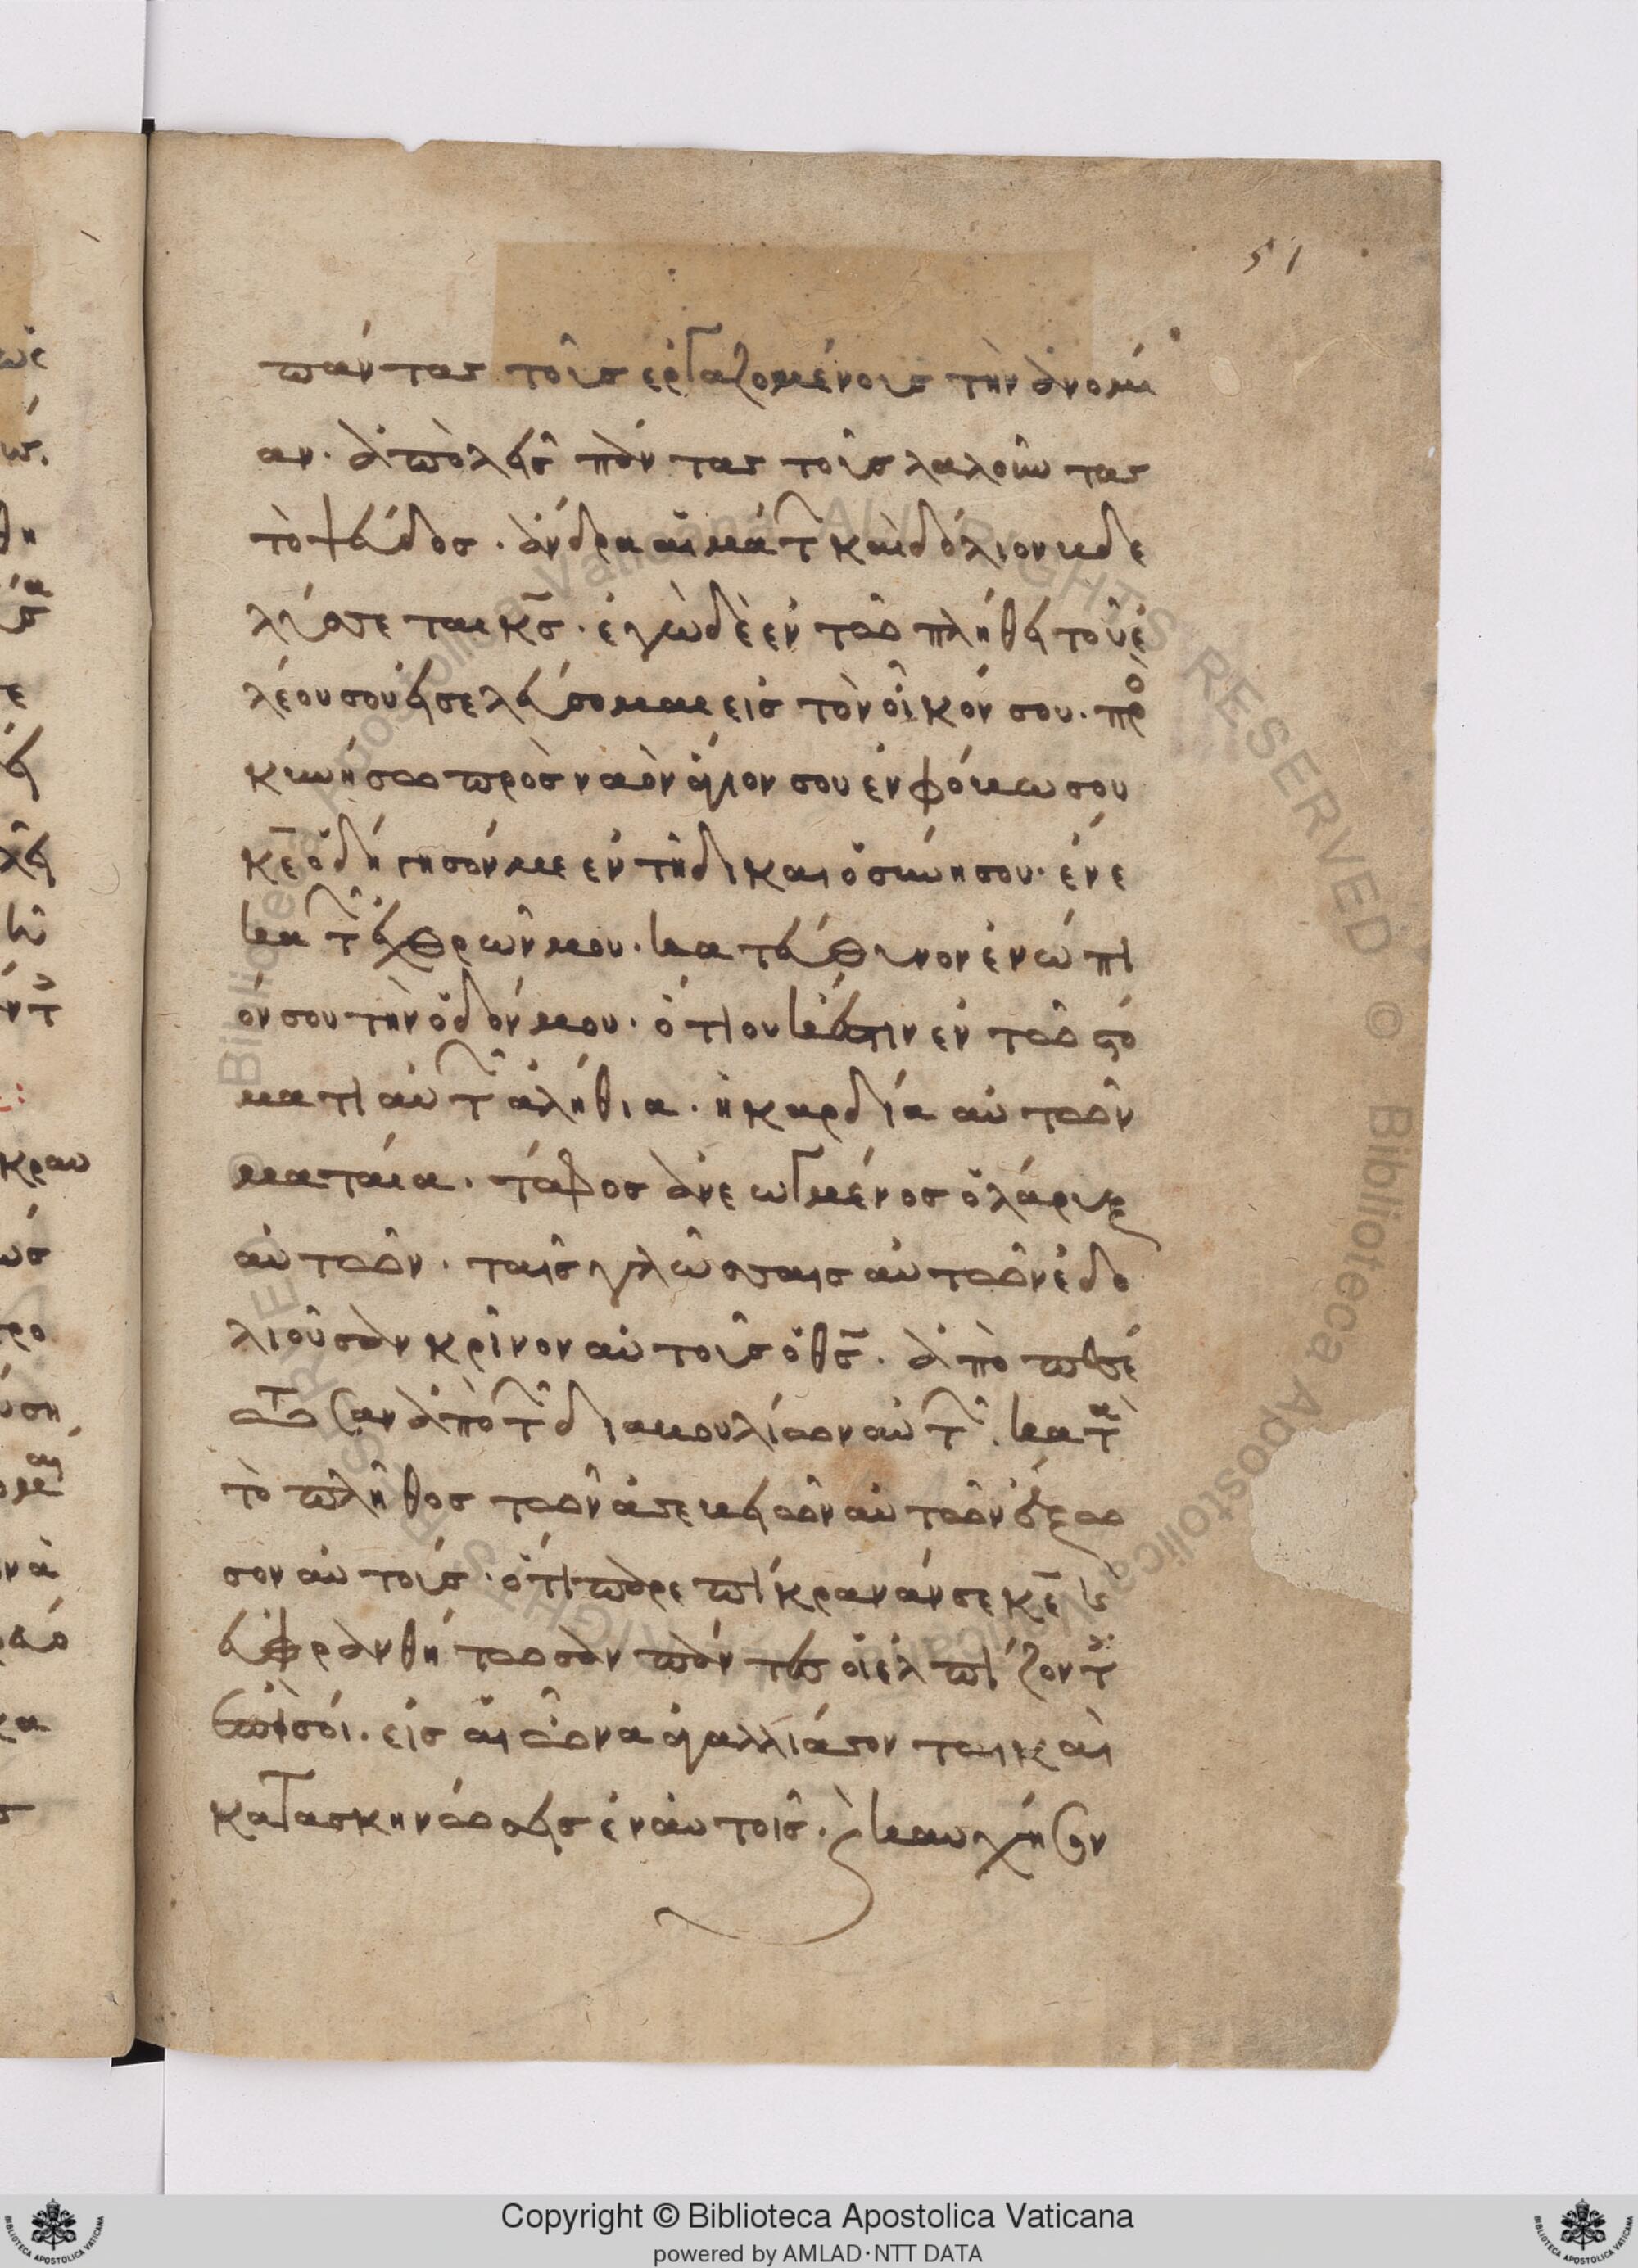 51
πάντας τοῖς ἐργαζομένοις τὴν ἀνομί
αν. ἀπολεῖς πάντας τοῖς λαλοῦντας
τὸ ψεύδος. ἄνδρα αἱμάτ̑ καὶ δόλιον βδε
λύσσεται κ̅ς̅. ἐγὼ δὲ ἐν τῶ πλήθει τοῦ ἐ
λέου σου εἰσελεύσομαι εἰς τὸν οἶκόν σου. πρ̊ο
κυνήσω πρὸς ναὸν ἅγιον σου ἐν φόβω σου
κ̅ε̅ ὁδήγησόν με ἐν τῆ δικαιοσύνη σου. ἕνε
κα τ̑ ἐχθρῶν μου. κατεύθυνον ἐνώπι
όν σου τὴν ὁδόν μου. ὅτι οὐκ ἔστιν ἐν τῶ στό
ματι αὐτ̑ ἀλήθια. ἡ καρδία αὐτῶν
ματαία. τάφος ἀνεωγμένος ὁ λάρυγξ
αὐτῶν. ταῖς γλώσσαις αὐτῶν ἐδο
λιοῦσαν κρῖνον αὐτοῖς ὁ θ̅ς̅. ἀποπεσέ
τωσαν ἀπὸ τ̑ διαβουλίων αὐτ̑. κατ̑α
τὸ πλῆθος τῶν ἀσεβειῶν αὐτῶν ἔξω
σον αὐτοίς. ὅτι παρεπίκρανάν σε κ̅ε̅ κ̀
εὐφρανθήτωσαν πάντες οἱ ἐλπίζοντ̑
ἐπὶ σοί. εἰς αἰῶνα ἀγαλλιάσονται καὶ
κατασκηνώσεις ἐν αὐτοῖς. κ̀ καυχήσον
Copyright © Biblioteca Apostolica Vaticana
powered by AMLAD·NTT DATA